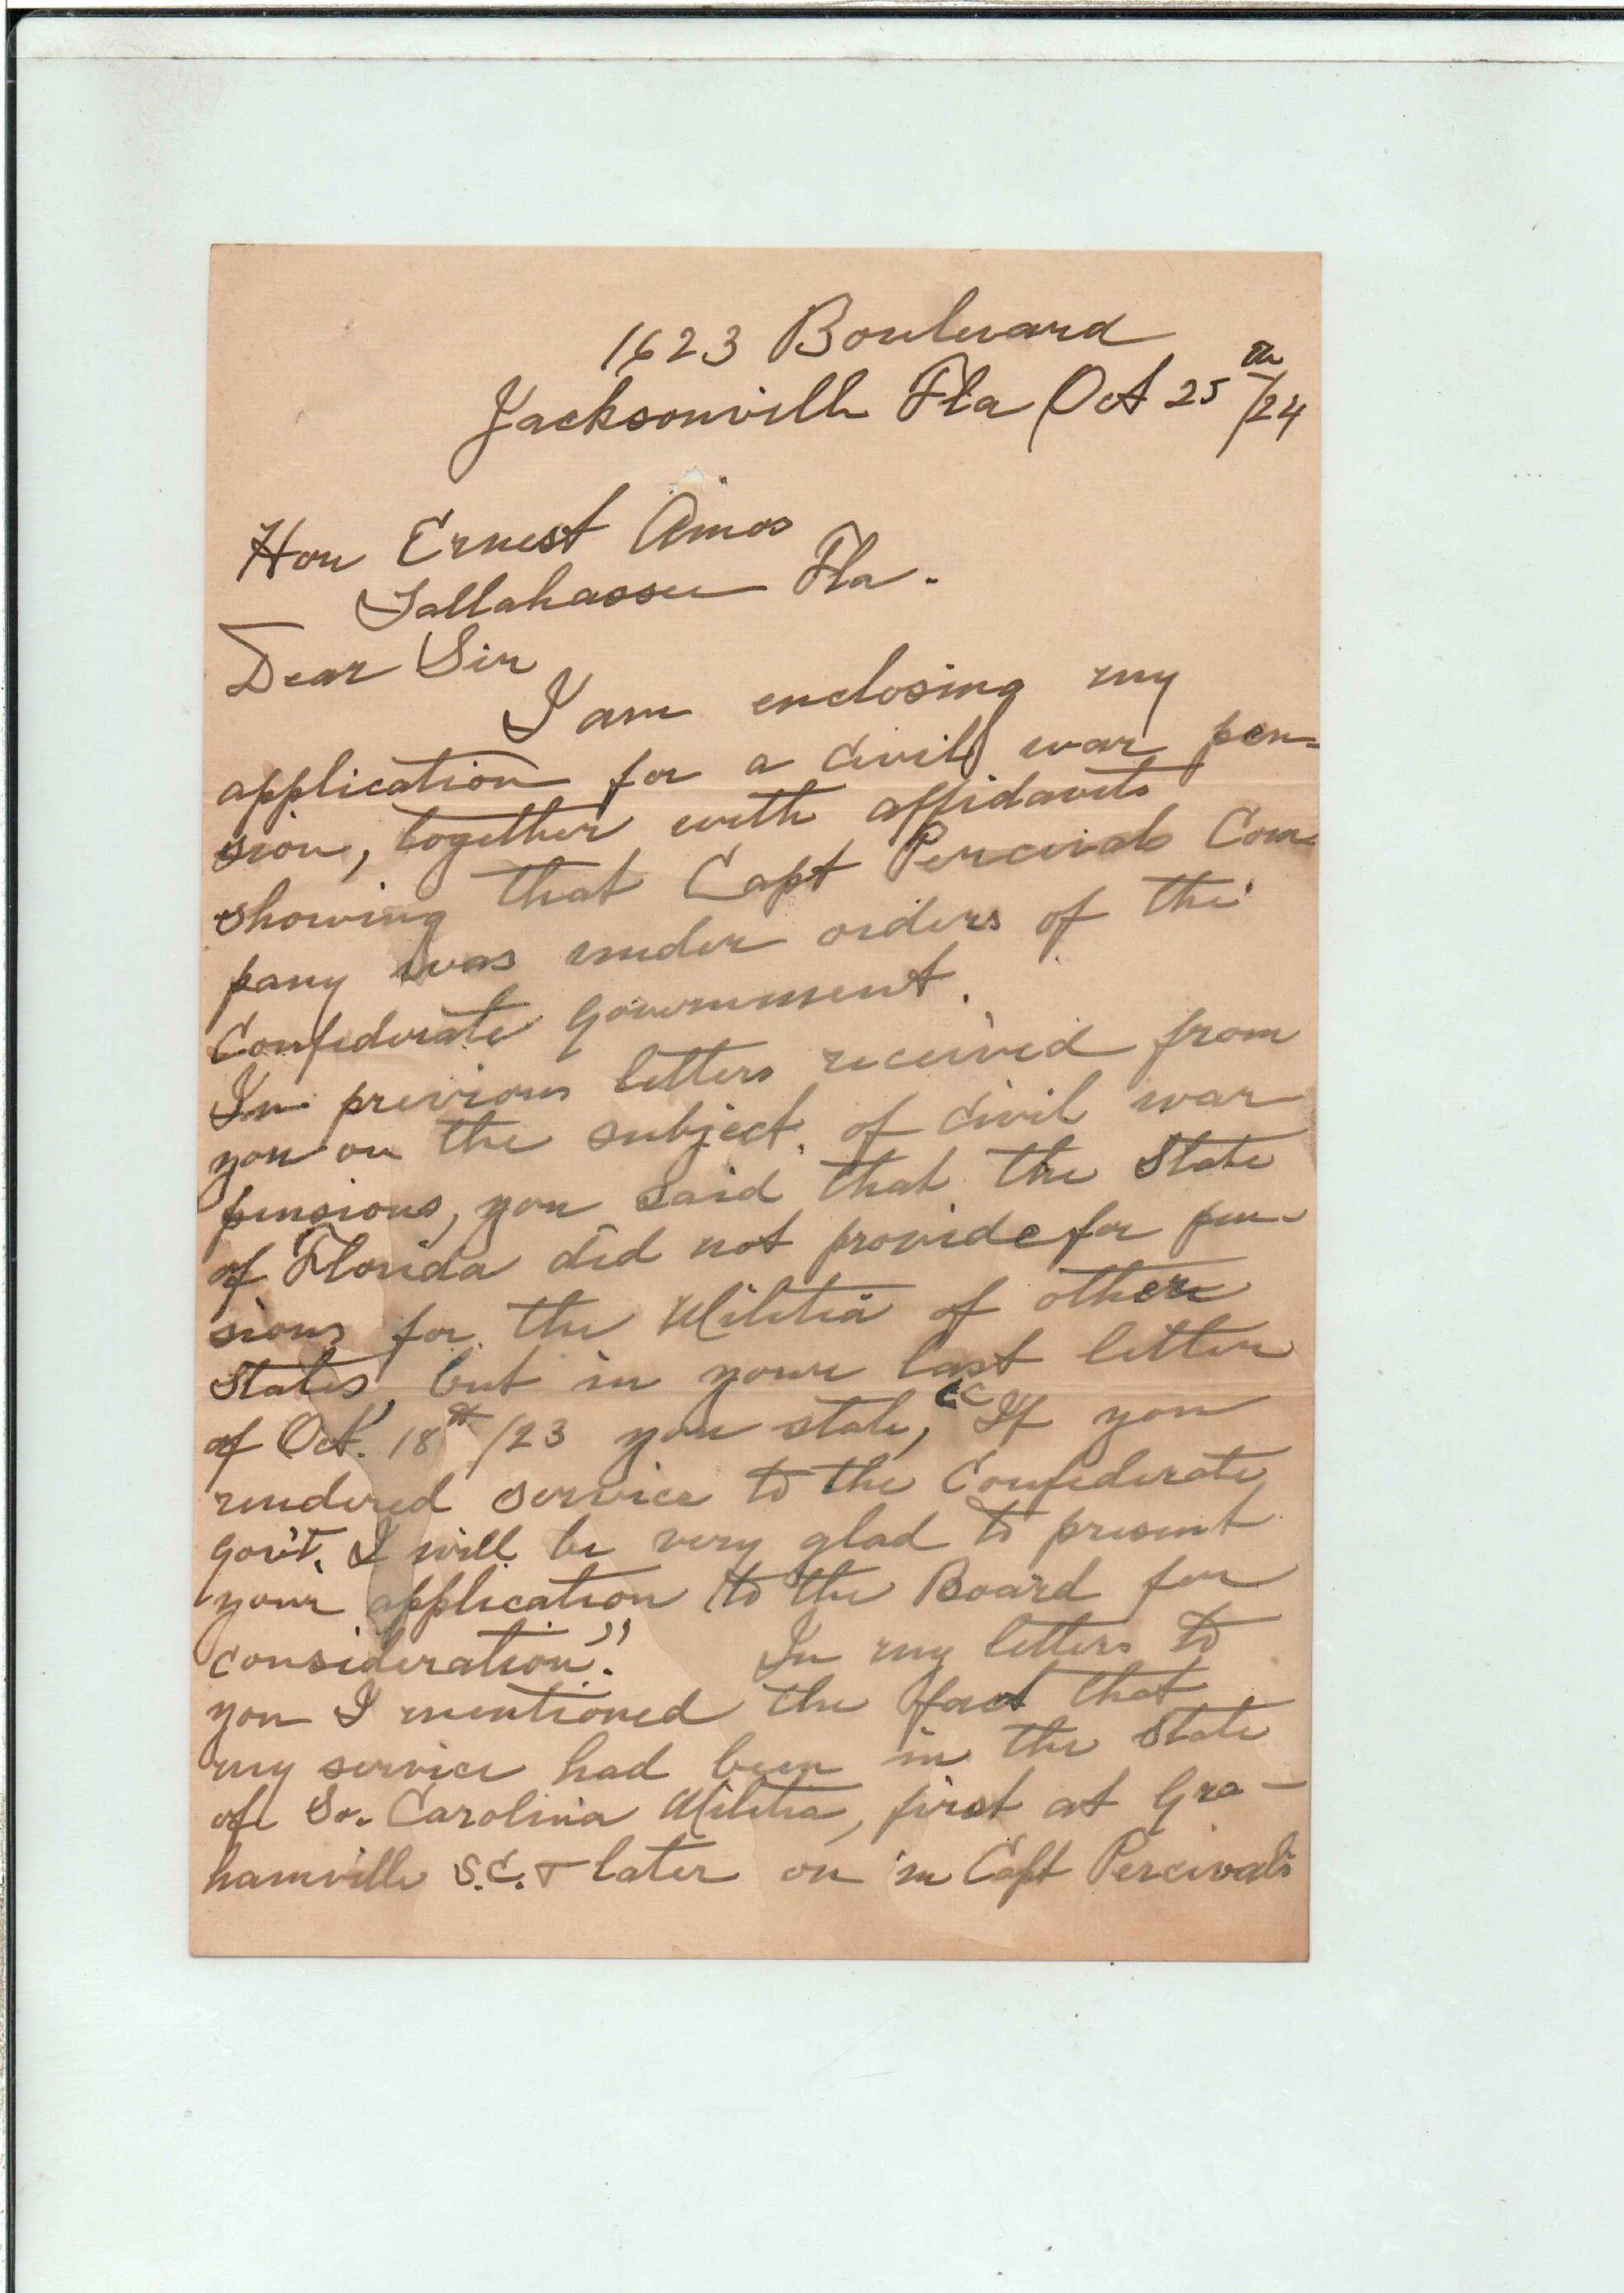 1623 Boulevard
Jacksonville Fla Oct 25th/24
Hon Ernest Amos
Tallahassee Fla.
Dear Sir
I am enclosing my
application for a civil war pen-
sion, together with affidavits
showing that Capt Percivals Com-
pany was under orders of the
Confederate Government.
In previous letters received from
you on the subject of civil war
pensions, you said that the State
of Florida did not provide for pen-
sions for the Militia of other
States, but in your last letter
of Oct. 18th/23 you state, "If you
rendered service to the Confederate
Gov't. I will be very glad to present
your application to the Board for
consideration." In my letters to
you I mentioned the fact that
my service had been in the State
of So. Carolina Militia, first at Gra-
hamville S.C. & later on in Capt Percival's